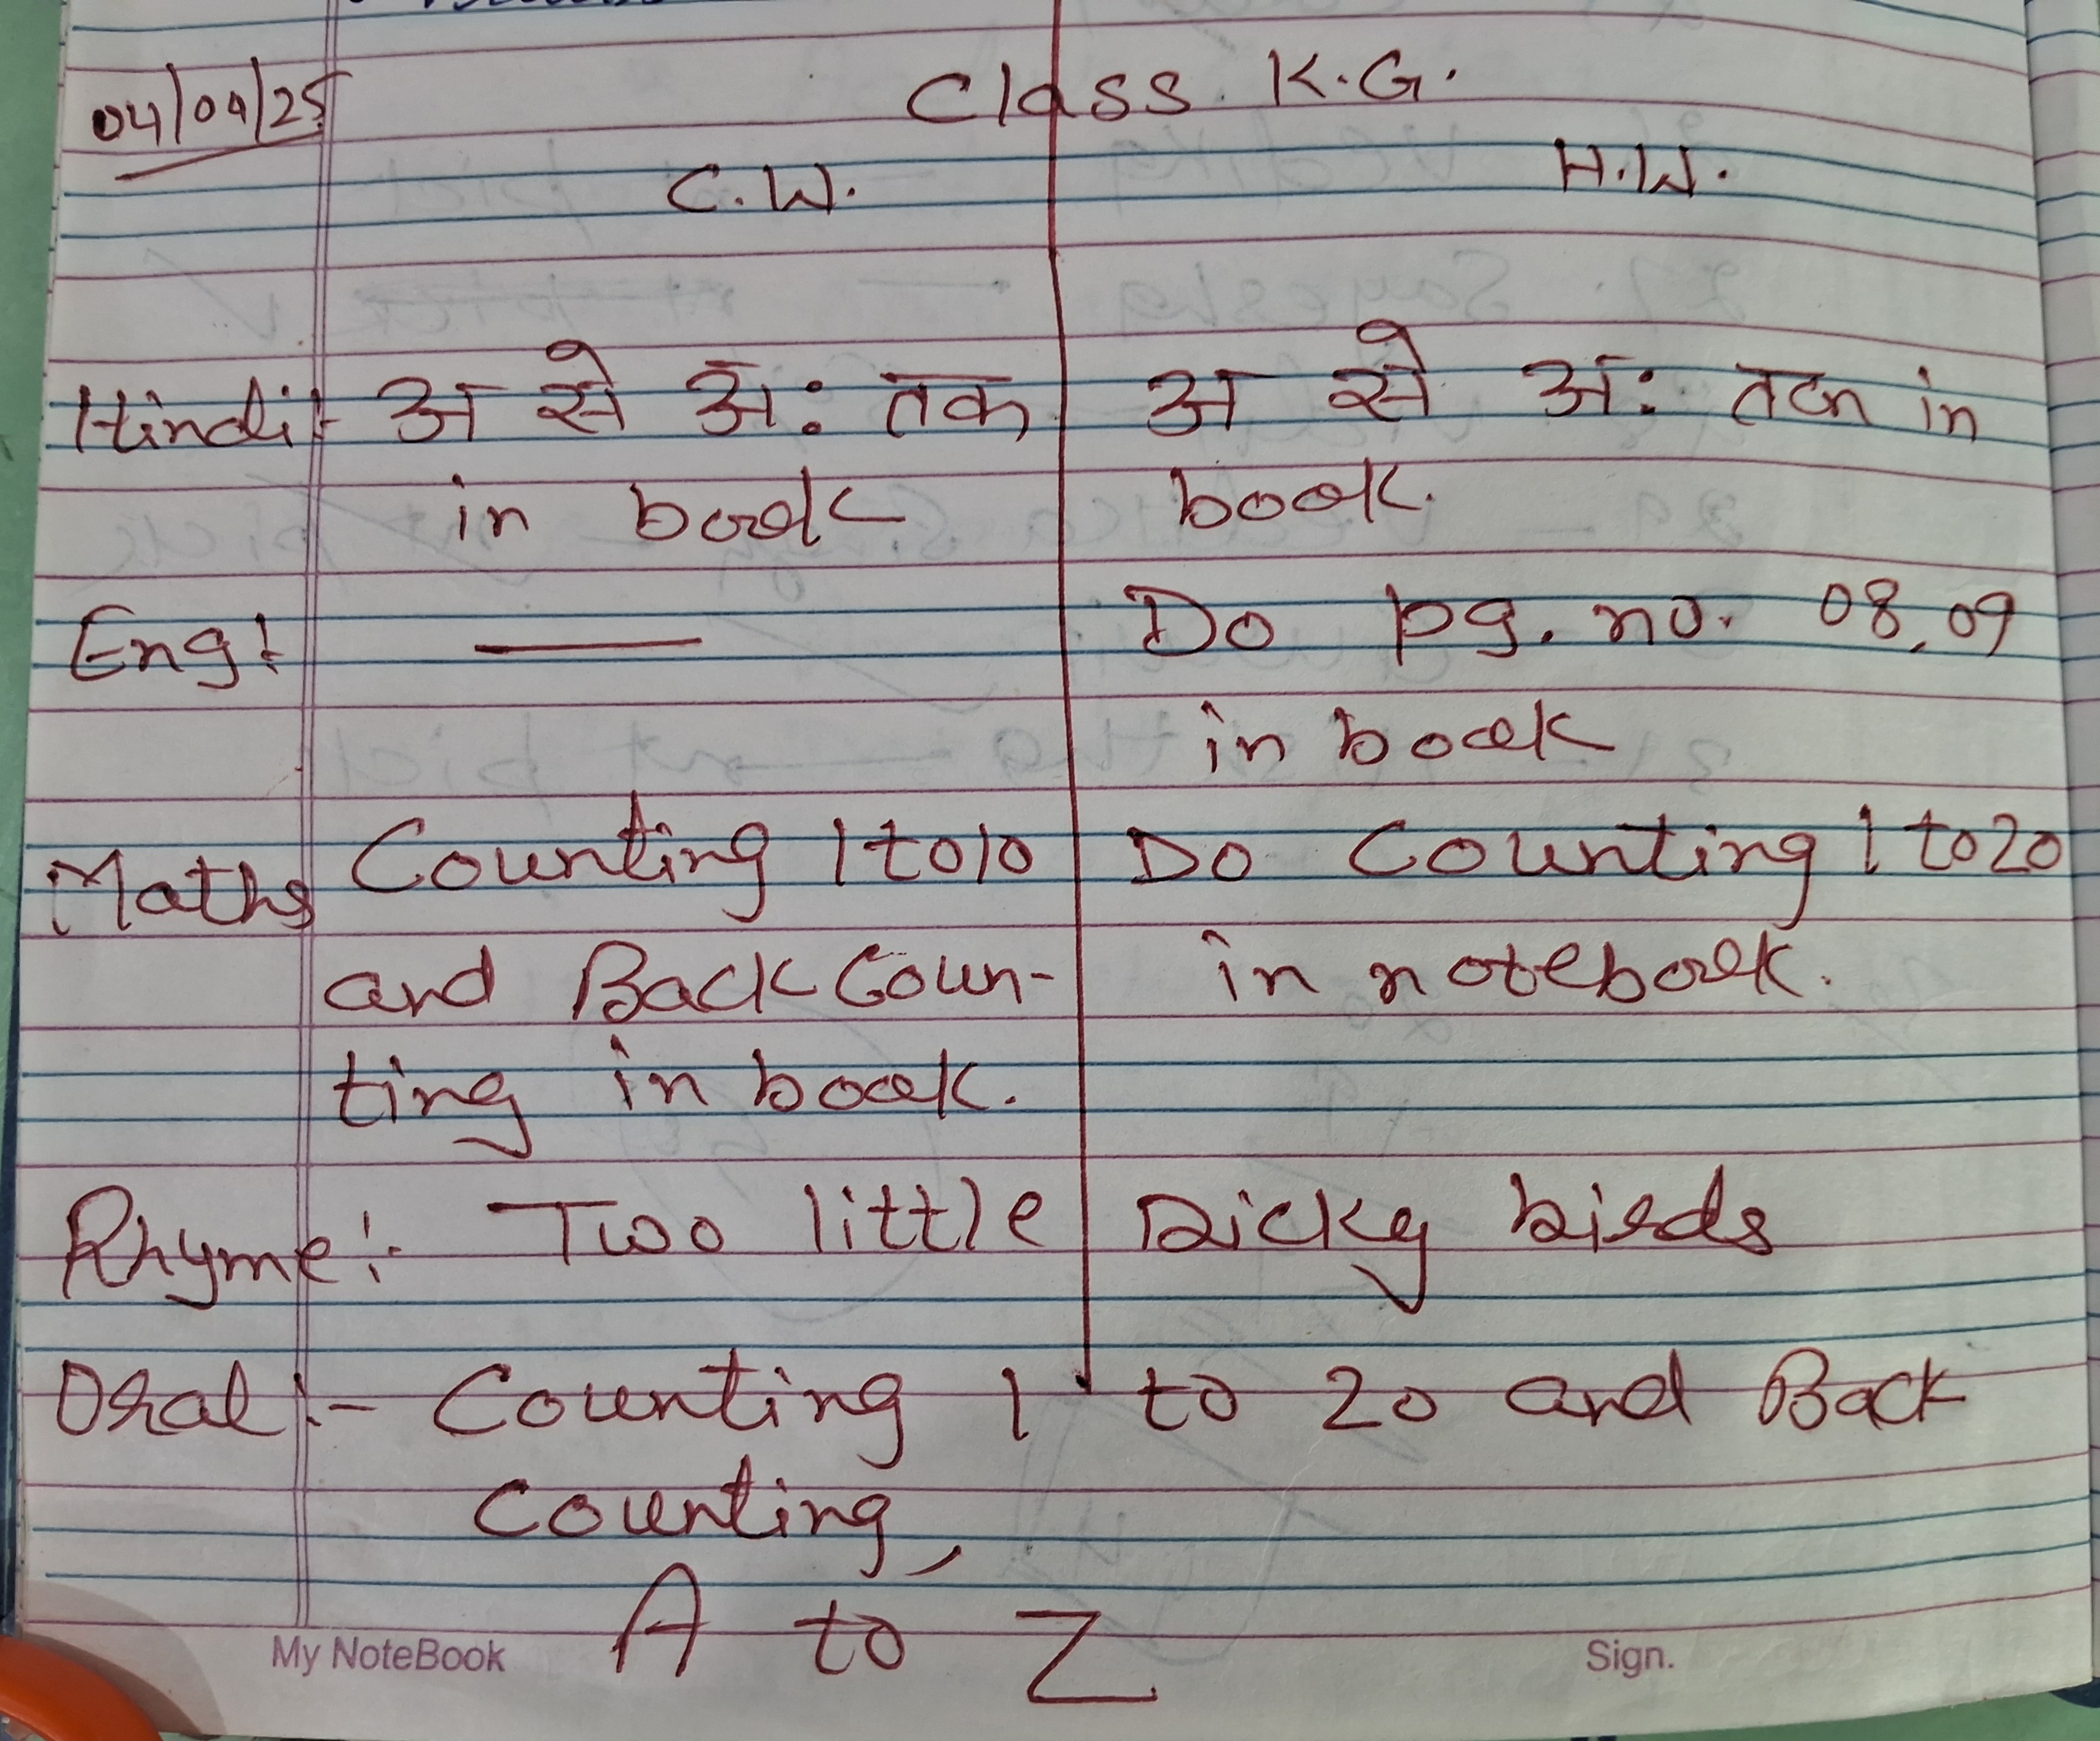 04/04/25
Class K.G.
C.W. H.W.
Hindi:- अ से अः तक अ से अः तक in
in book book.
Eng:- — Do pg. no. 08, 09
in book
Maths Counting 1 to 10 Do Counting 1 to 20
and Back Coun- in notebook.
ting in book.
Rhyme:- Two little Dicky birds
Oral:- Counting 1 to 20 and Back
Counting,
A to Z
My NoteBook Sign.